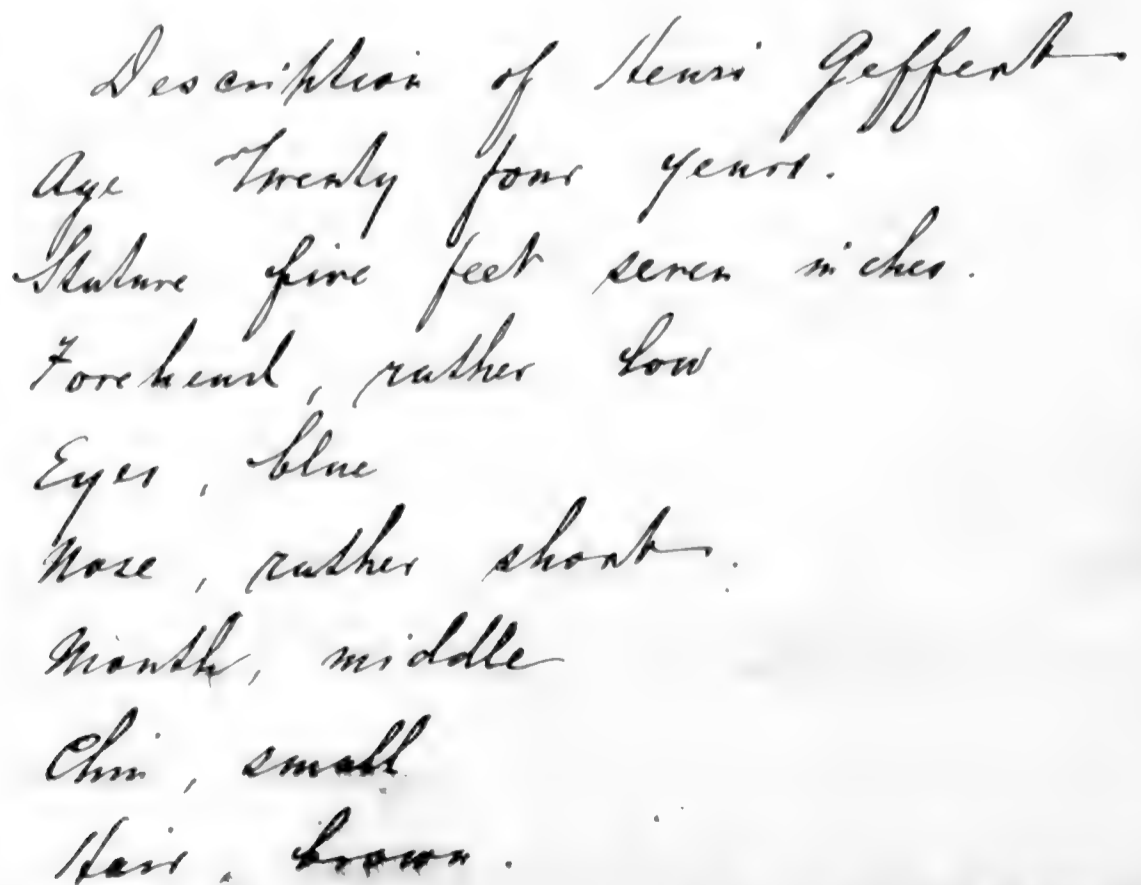 Description of Henri Geffert
Age Twenty four years.
Stature five feet seven inches.
Forehead, rather low
Eyes, blue
Nose, rather short.
Mouth, middle
Chin, small
Hair, brown.